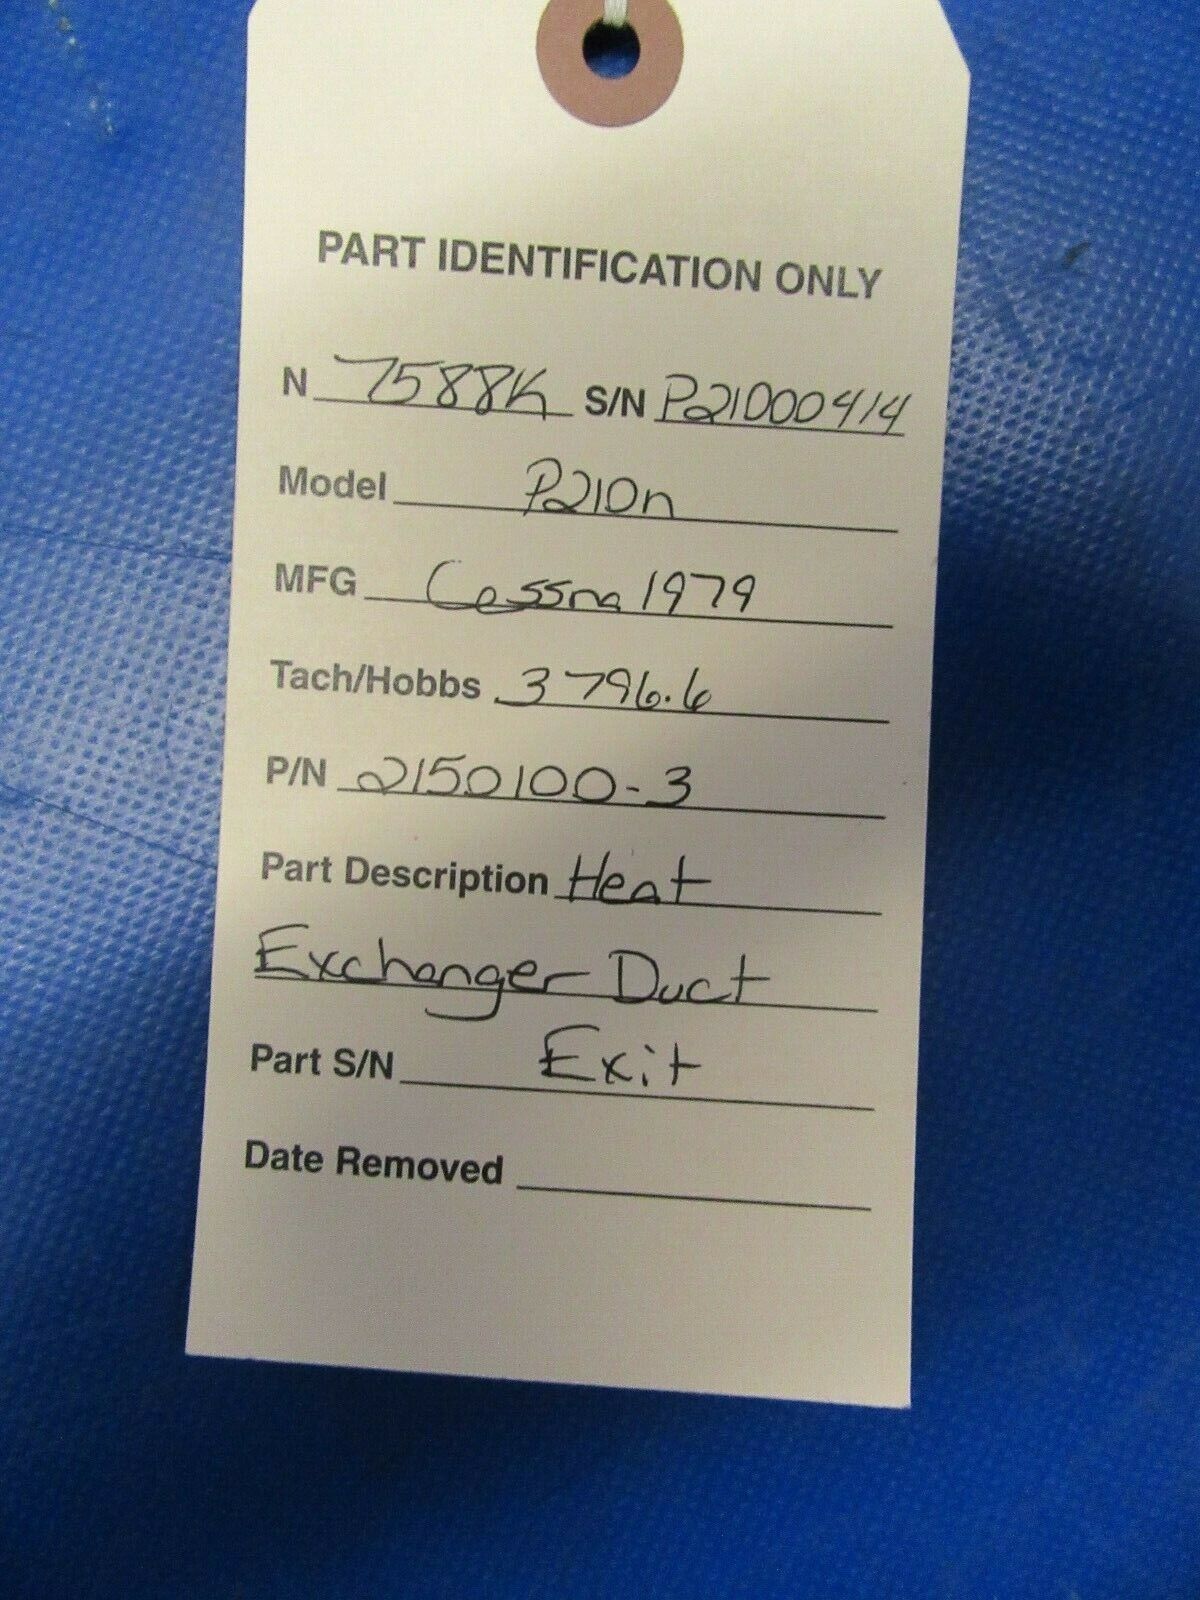 PART IDENTIFICATION ONLY
N 7588K S/N P21000414
Model P210n
MFG Cessna 1979
Tach/Hobbs 3796.6
P/N 2150100-3
Part Description Heat
Exchanger Duct
Part S/N Exit
Date Removed